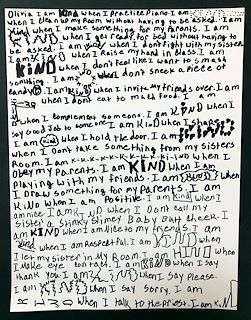 Olivia I am kind when I Practice Piano I am
kind when I clean up my Room without having to be asked. I am
kind when I make something for my Parents. I am
kind when I get ready for bed without having to
be asked. I am kind when I don't fight with my sister
I am kind when I Raise my hand in class. I am
KIND when I don't feel like I want to smash
something. I am kind when dont sneak a piece of
candy. I am kind when I invite my friends over. I am
kind when I dont eat to much food. I am
when I complement someone. I am KIND when I
say Good Job to someone. I am KIND when I share.
I am kind when I hold the door. I am
when I dont take something from my sisters
Room. I am K-K-K-K-K-K-K-I-ND when I
obey my Parents. I am KIND when I am
playing with my friends. I am when
I Draw something for my Parents. I am
KIND when I am Positive. I am kind when I
am nice. I am KIND when I Dont call my
sister a stinky blinky Baby butt cheek. I
am KIND when I am nice to my friends. I am
kind when I am Respectful. I am KIND when
I let my sister in My Room. I am KIND when
I Make eye contact. I am KIND when I say
thank you. I am KIND when I say Please.
I am KIND when I say Sorry. I am
KIND when I talk to the Priest. I am KIND